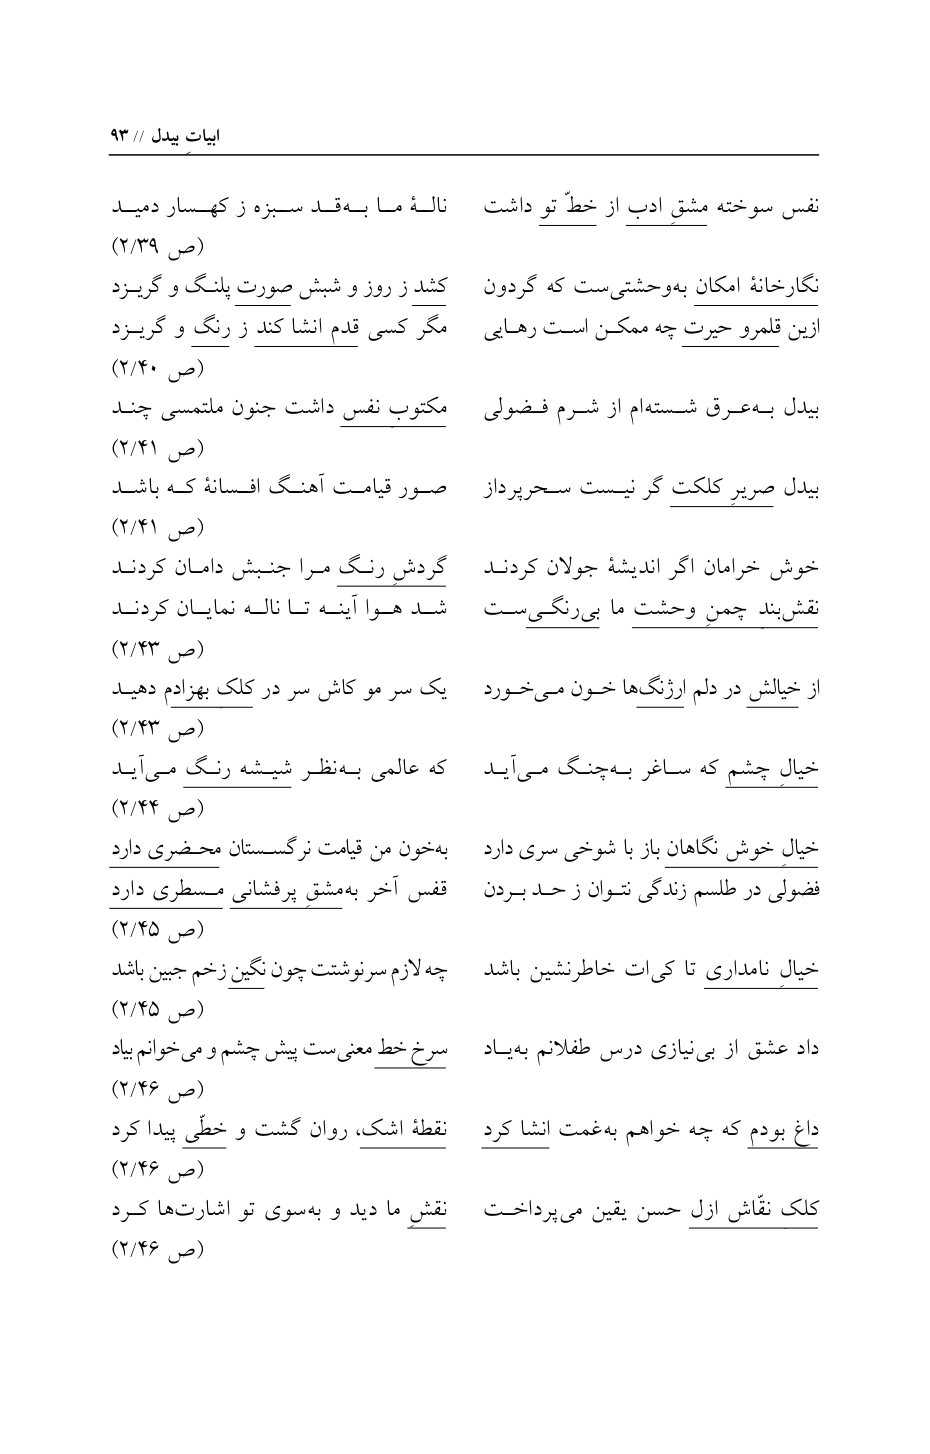 ابیاتِ بیدل // ۹۳
نفس سوخته مشقِ ادب از خطّ تو داشت نالهٔ ما به‌قد سبزه ز کهسار دمید
(ص ۲/۳۹)
نگارخانهٔ امکان به‌وحشتی‌ست که گردون کشد ز روز و شبش صورت پلنگ و گریزد
ازین قلمرو حیرت چه ممکن است رهایی مگر کسی قدم انشا کند ز رنگ و گریزد
(ص ۲/۴۰)
بیدل به‌عرق شسته‌ام از شرم فضولی مکتوبِ نفس داشت جنون ملتمسی چند
(ص ۲/۴۱)
بیدل صریرِ کلکت گر نیست سحرپرداز صور قیامت آهنگ افسانهٔ که باشد
(ص ۲/۴۱)
خوش خرامان اگر اندیشهٔ جولان کردند گردشِ رنگ مرا جنبش دامان کردند
نقش‌بندِ چمنِ وحشت ما بی‌رنگی‌ست شد هوا آینه تا ناله نمایان کردند
(ص ۲/۴۳)
از خیالش در دلم ارژنگ‌ها خون می‌خورد یک سر مو کاش سر در کلک بهزادم دهید
(ص ۲/۴۳)
خیالِ چشم که ساغر به‌چنگ می‌آید که عالمی به‌نظر شیشه رنگ می‌آید
(ص ۲/۴۴)
خیالِ خوش نگاهان باز با شوخی سری دارد به‌خون من قیامت نرگسستان محضری دارد
فضولی در طلسم زندگی نتوان ز حد بردن قفس آخر به‌مشقِ پرفشانی مسطری دارد
(ص ۲/۴۵)
خیالِ نامداری تا کی‌ات خاطرنشین باشد چه لازم سرنوشتت چون نگین زخم جبین باشد
(ص ۲/۴۵)
داد عشق از بی‌نیازی درس طفلانم به‌یاد سرخ خط معنی‌ست پیش چشم و می‌خوانم بیاد
(ص ۲/۴۶)
داغ بودم که چه خواهم به‌غمت انشا کرد نقطهٔ اشک، روان گشت و خطّی پیدا کرد
(ص ۲/۴۶)
کلک نقّاش ازل حسن یقین می‌پرداخت نقشِ ما دید و به‌سوی تو اشارت‌ها کرد
(ص ۲/۴۶)